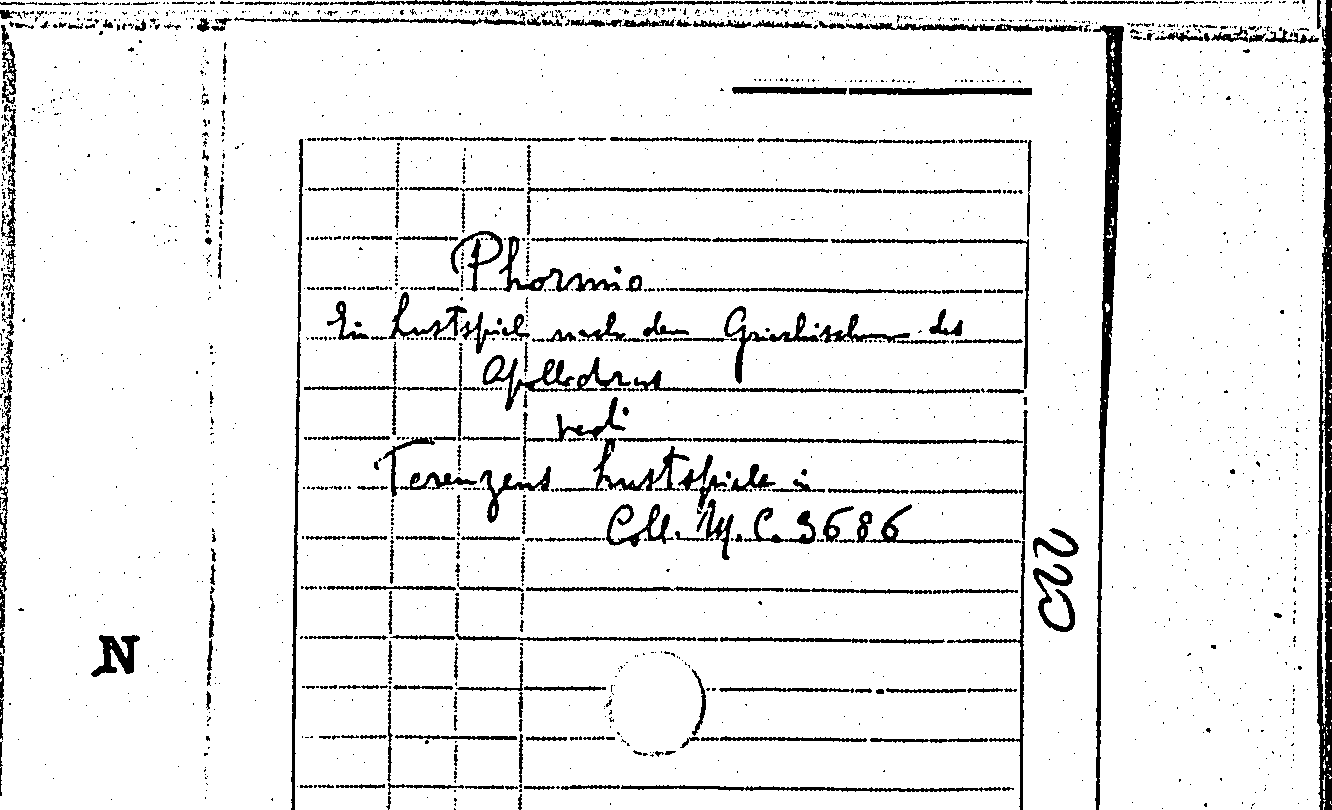 Phormio
Ein Lustspiel nach dem Griechischen des
Apollodorus
vedi
Terenzens Lustspiele in
Coll. M. C. 3686
N